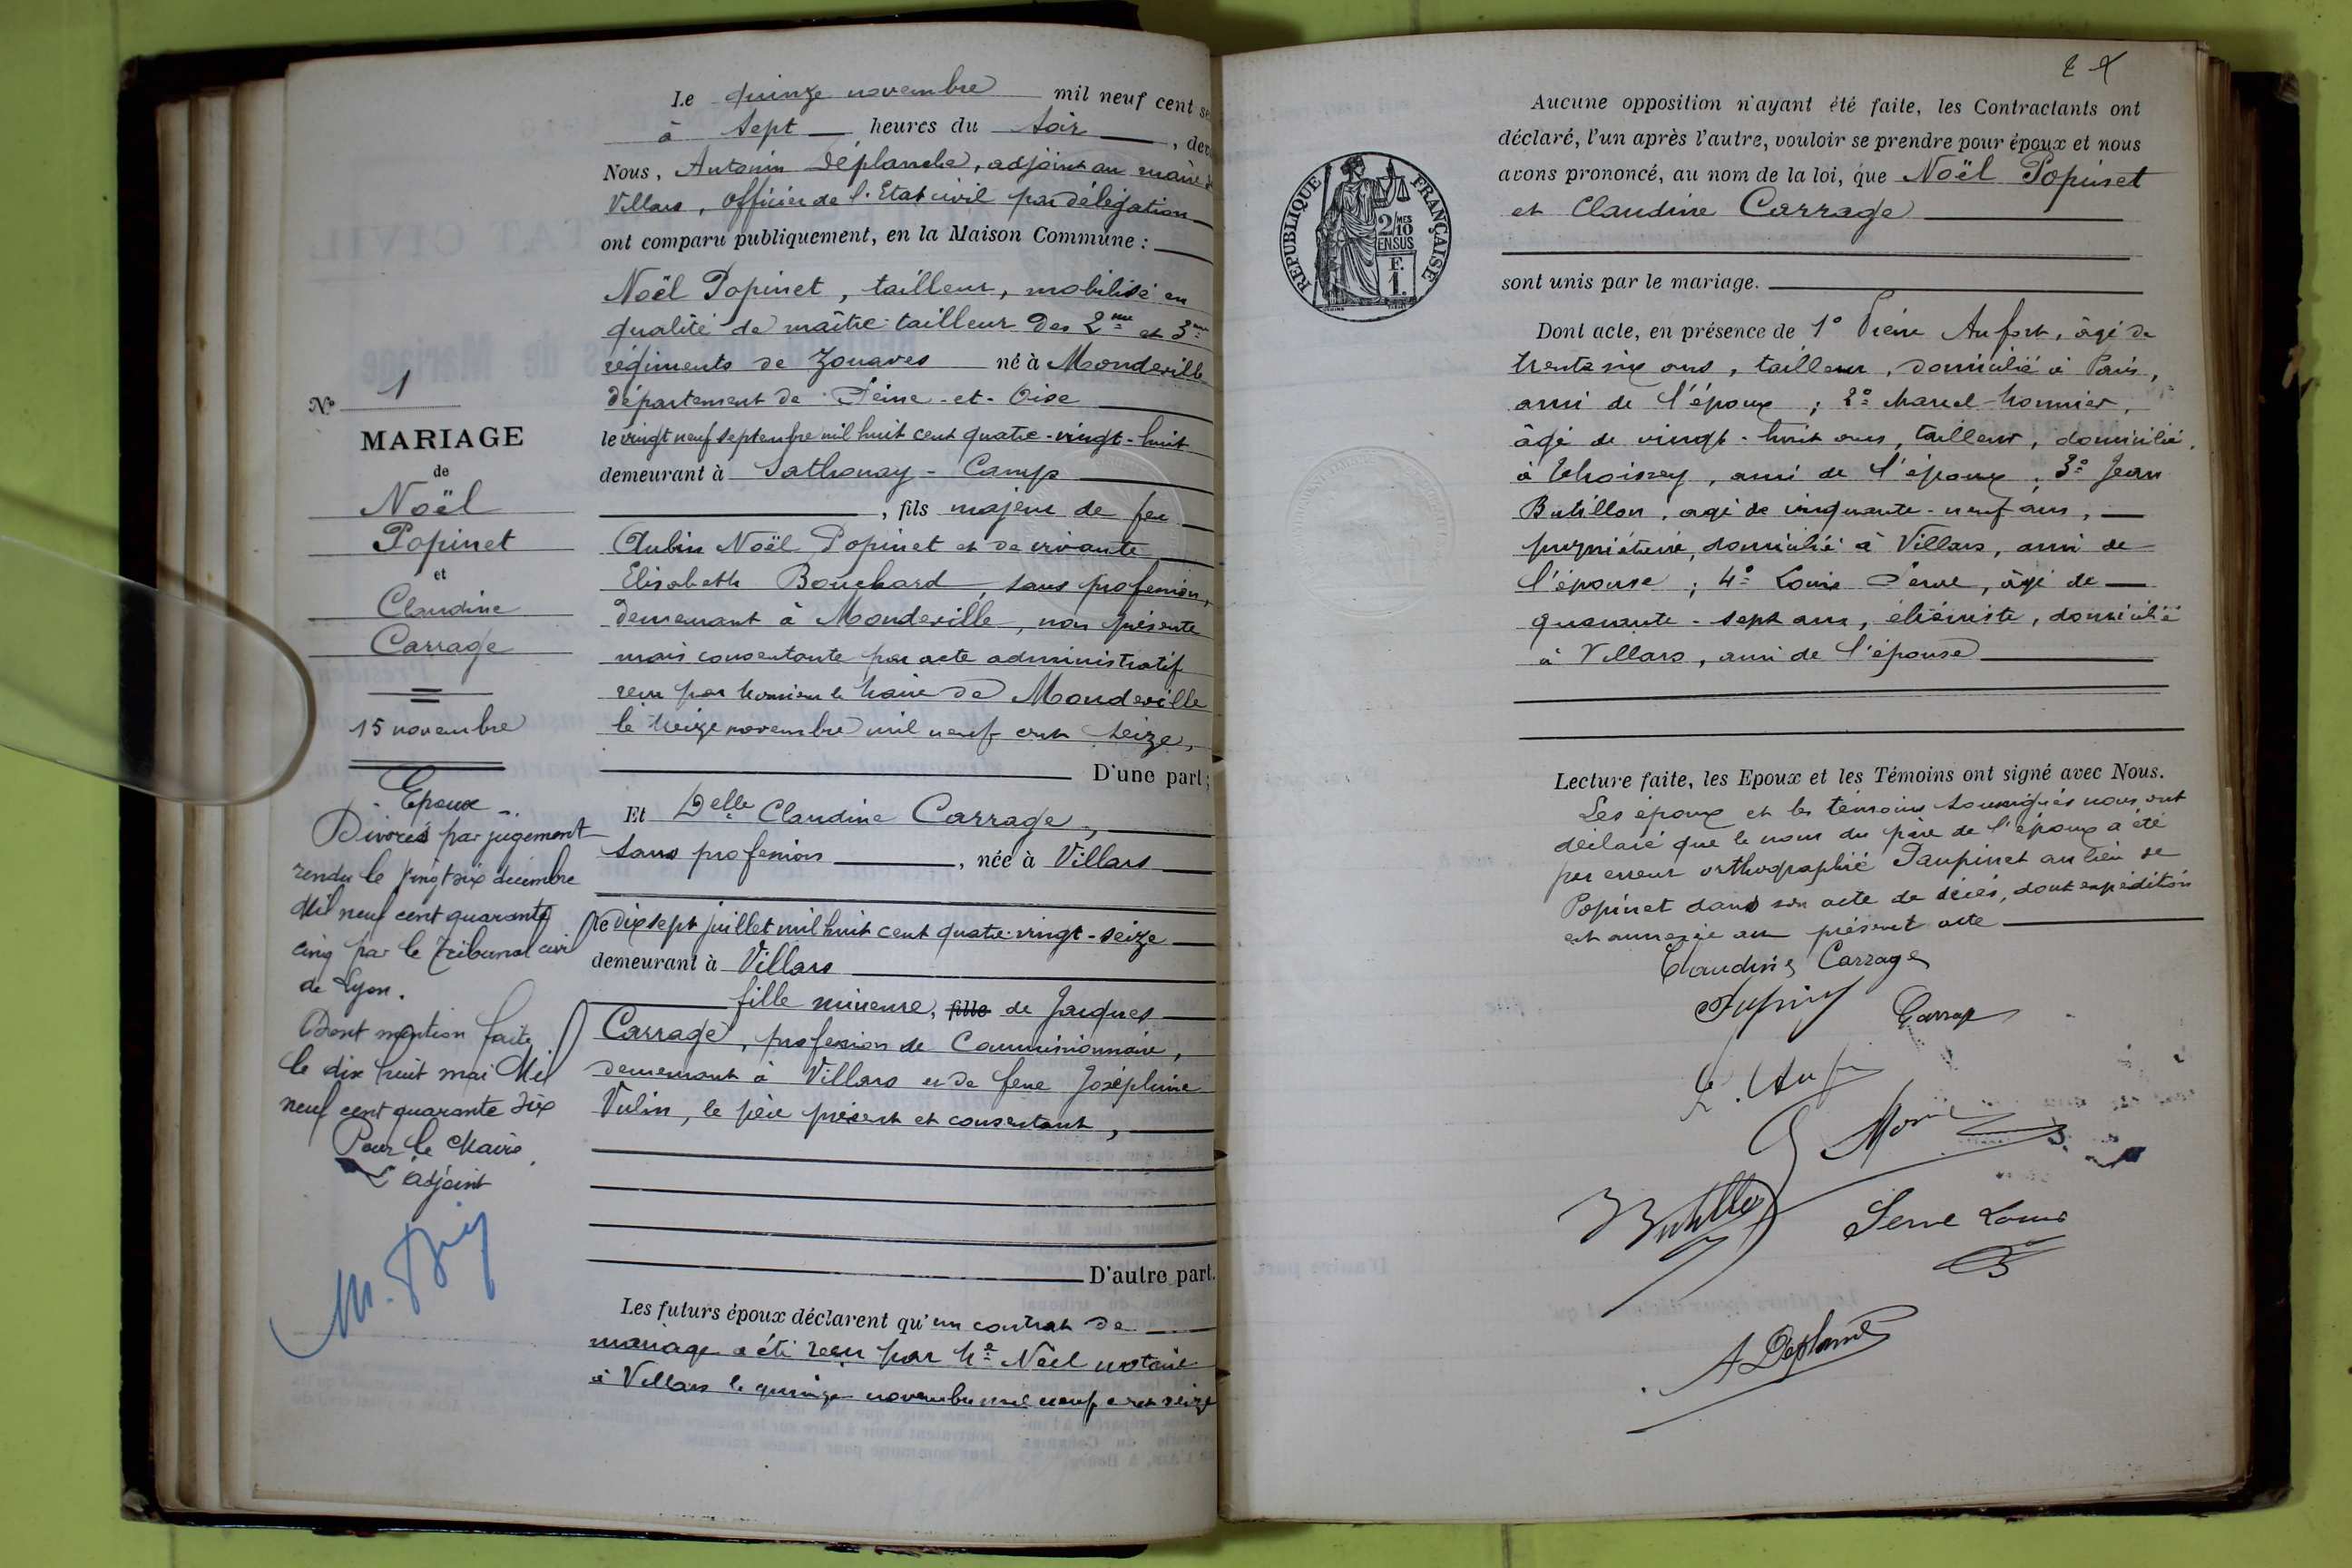 Le quinze novembre mil neuf cent se
à sept heures du soir, dev
Nous, Antonin Déplanche, adjoint au maire d
Villars, Officier de l'Etat civil par délégation
ont comparu publiquement, en la Maison Commune :
Noël Popinet, tailleur, mobilisé en
qualité de maître-tailleur des 2me et 3me
régiments de Zouaves né à Mondeville
département de Seine-et-Oise
le vingt neuf septembre mil huit cent quatre-vingt-huit
demeurant à Sathonay-Camp
, fils majeur de feu
Aubin Noël Popinet et de vivante
Elisabeth Bouchard, sans profession,
demeurant à Mondeville, non présente
mais consentante par acte administratif
reçu par Monsieur le Maire de Mondeville
le treize novembre mil neuf cent seize,
D'une part;
Et Delle Claudine Carrage,
sans profession, née à Villars
le dix sept juillet mil huit cent quatre-vingt-seize
demeurant à Villars
fille mineure, fille de Jacques
Carrage, profession de Commissionnaire,
demeurant à Villars et de feue Joséphine
Vulin, le père présent et consentant,
D'autre part.
Les futurs époux déclarent qu'un contrat de
mariage a été reçu par Me Noël notaire
à Villars le quinze novembre mil neuf cent seize
No 1
MARIAGE
de
Noël
Popinet
et
Claudine
Carrage
15 novembre
Epoux
Divorcés par jugement
rendu le vingt six décembre
Mil neuf cent quarante
cinq par le tribunal civil
de Lyon.
Dont mention faite
le dix huit mai Mil
neuf cent quarante six
Pour le Maire
L'adjoint
REPUBLIQUE FRANÇAISE
2/10
EN SUS
F.
1.
Aucune opposition n'ayant été faite, les Contractants ont
déclaré, l'un après l'autre, vouloir se prendre pour époux et nous
avons prononcé, au nom de la loi, que Noël Popinet
et Claudine Carrage
sont unis par le mariage.
Dont acte, en présence de 1° Pierre Aufort, âgé de
trente six ans, tailleur, domicilié à Paris,
ami de l'époux ; 2° Marcel Monnier,
âgé de vingt-huit ans, tailleur, domicilié
à Thoissey, ami de l'époux ; 3° Jean
Butillon, âgé de cinquante-neuf ans,
propriétaire, domicilié à Villars, ami de
l'épouse ; 4° Louis Serve, âgé de
quarante-sept ans, ébéniste, domicilié
à Villars, ami de l'épouse
Lecture faite, les Epoux et les Témoins ont signé avec Nous.
Les époux et les témoins soussignés nous ont
déclaré que le nom du père de l'époux a été
par erreur orthographié Paupinet au lieu de
Popinet dans son acte de décès, dont expédition
est annexée au présent acte
Claudine Carrage
Carrage
Butillon
Serve Louis
A Deplanche